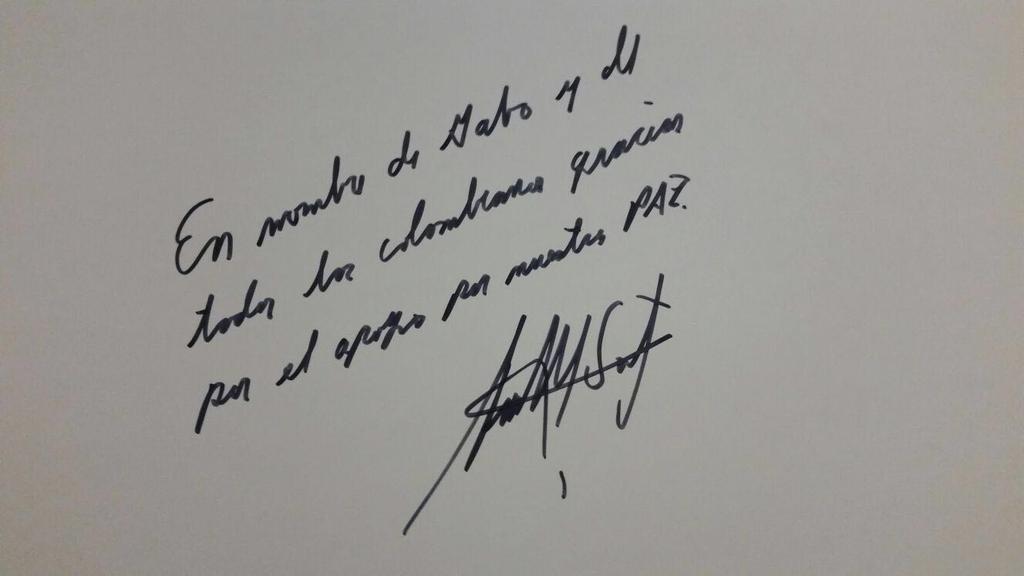 En nombre de Gabo y de
todos los colombianos gracias
por el apoyo por nuestra PAZ.